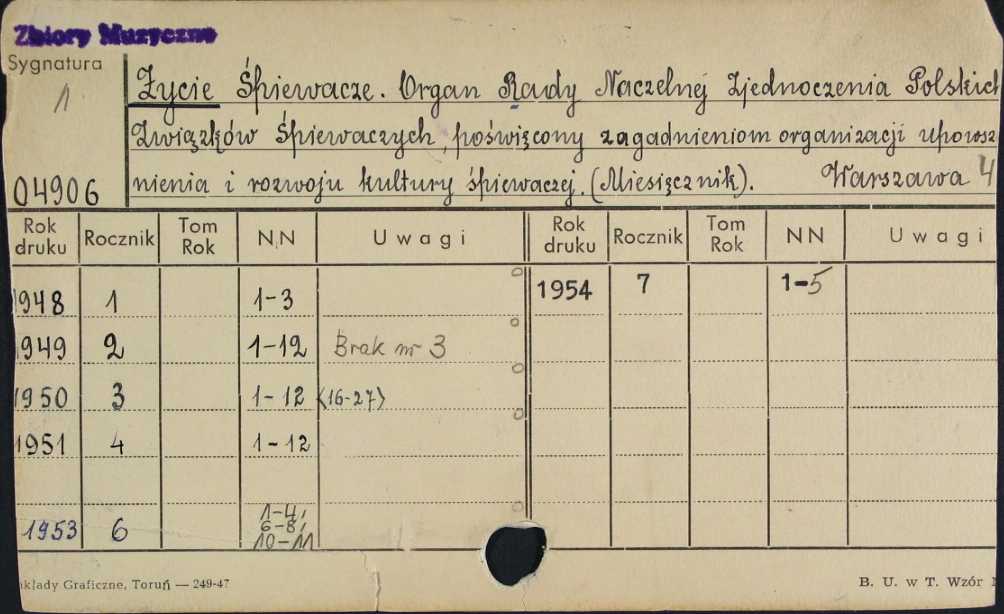 Zbiory Muzyczne
Sygnatura
1
Życie Śpiewacze. Organ Rady Naczelnej Zjednoczenia Polskich
Związków Śpiewaczych, poświęcony zagadnieniom organizacji upowsz
nienia i rozwoju kultury śpiewaczej. (Miesięcznik). Warszawa 4
04906
Rok druku Rocznik Tom Rok NN Uwagi Rok druku Rocznik Tom Rok NN Uwagi
1948 1 1-3 1954 7 1-5
1949 2 1-12 Brak nr 3
1950 3 1-12 <16-27>
1951 4 1-12
1953 6 1-4, 6-8, 10-11
kłady Graficzne, Toruń — 249-47 B. U. w T. Wzór